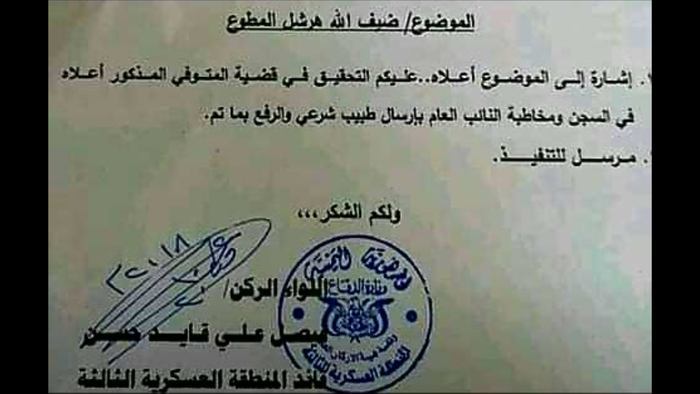 الموضوع/ ضيف الله هرشل المطوع
إشارة إلى الموضوع أعلاه..عليكم التحقيق في قضية المتوفي المذكور أعلاه
في السجن ومخاطبة النائب العام بإرسال طبيب شرعي والرفع بما تم.
مرسل للتنفيذ.
ولكم الشكر،،،
اللواء الركن/
فيصل علي قايد حسن
قائد المنطقة العسكرية الثالثة
الجمهورية اليمنية
وزارة الدفاع
المنطقة العسكرية الثالثة